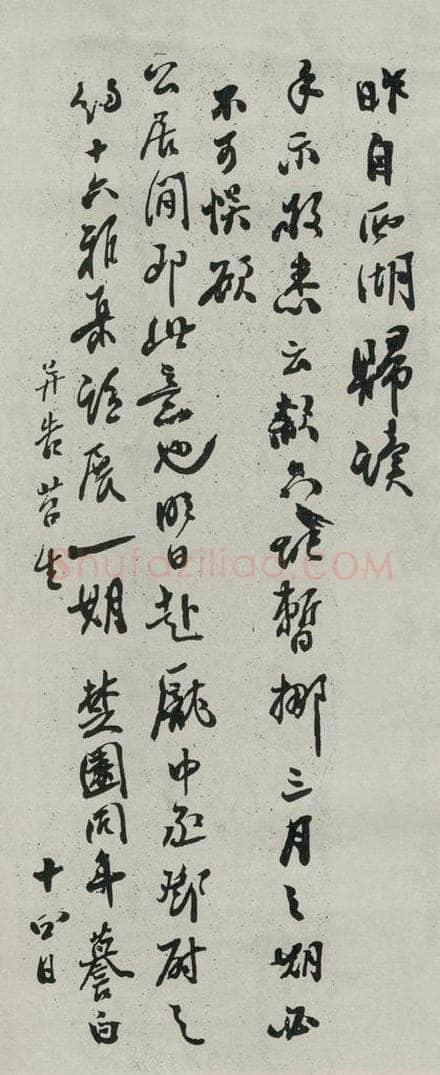 昨自西湖歸讀
手示敬悉云款暫挪三月之期必
不可悞碩
公居間即此意也明日赴龐中丞鄧尉之
約十六雅集請展一期 楚園同年 謩白
并告苕生
十四日
Shufaziliao.COM